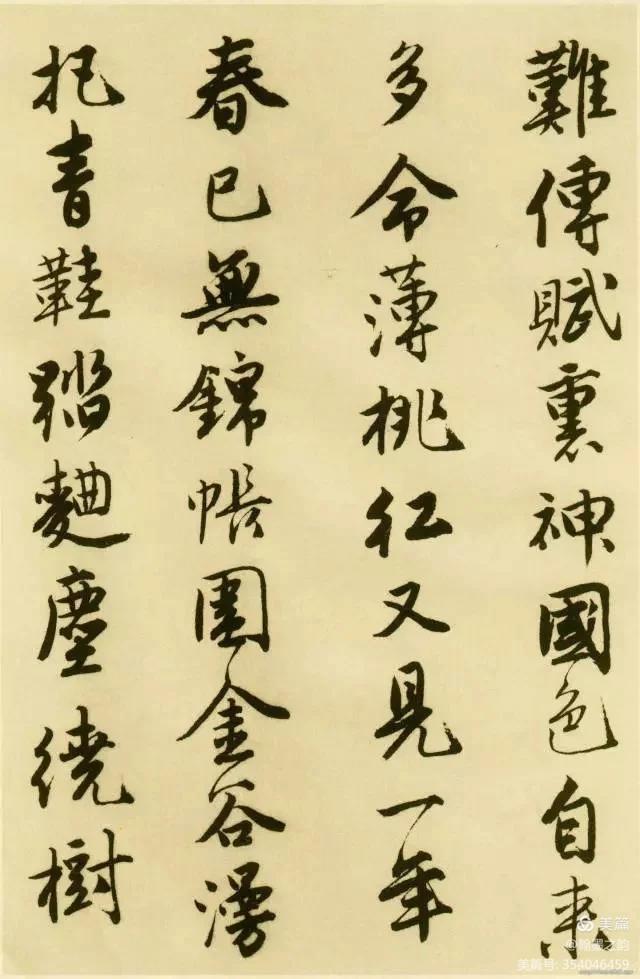 難傳賦裏神國色自來
多命薄桃紅又見一年
春已無錦帳圍金谷漫
把青鞋踏麴塵繞樹
美篇
@翰墨之韵
美篇号: 354046459